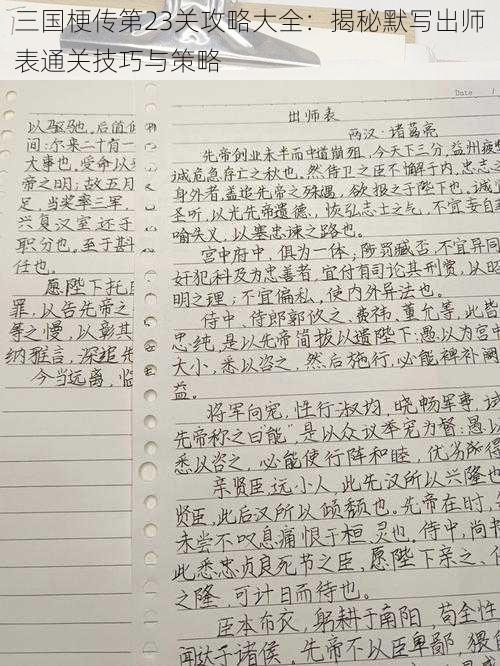 三国梗传第23关攻略大全：揭秘默写出师
表通关技巧与策略
以驱驰。后值倾
间：尔来二十有一
大事也。受命以
帝之明；故五月
足，当率三军
兴复汉室，还于
职分也。至于斟
任也。
愿陛下托
罪，以告先帝之
等之慢，以彰其
纳雅言，深追先
今当远离，临
Date
出师表
两汉：诸葛亮
先帝创业未半而中道崩殂，今天下三分，益州疲
诚危急存亡之秋也。然侍卫之臣不懈于内，忠志之
身外者，盖追先帝之殊遇，欲报之于陛下也。诚
圣听，以光先帝遗德，恢弘志士之气，不宜妄自
喻失义，以塞忠谏之路也。
宫中府中，俱为一体；陟罚臧否，不宜异同
奸犯科及为忠善者，宜付有司论其刑赏，以昭
明之理；不宜偏私，使内外异法也。
侍中、侍郎郭攸之、费祎、董允等，此皆
忠纯，是以先帝简拔以遗陛下：愚以为宫
大小，悉以咨之，然后施行，必能裨补阙
益。
将军向宠，性行淑均，晓畅军事，试
先帝称之曰“能”，是以众议举宠为督：愚以
悉以咨之，必能使行阵和睦，优劣所得
亲贤臣，远小人，此先汉所以兴隆也
贤臣，此后汉所以倾颓也。先帝在时，
未尝不叹息痛恨于桓、灵也。侍中，尚
此悉忠贞良死节之臣，愿陛下亲之、
之隆，可计日而待也。
臣本布衣，躬耕于南阳，苟全性
闻达于诸侯。先帝不以臣卑鄙，猥